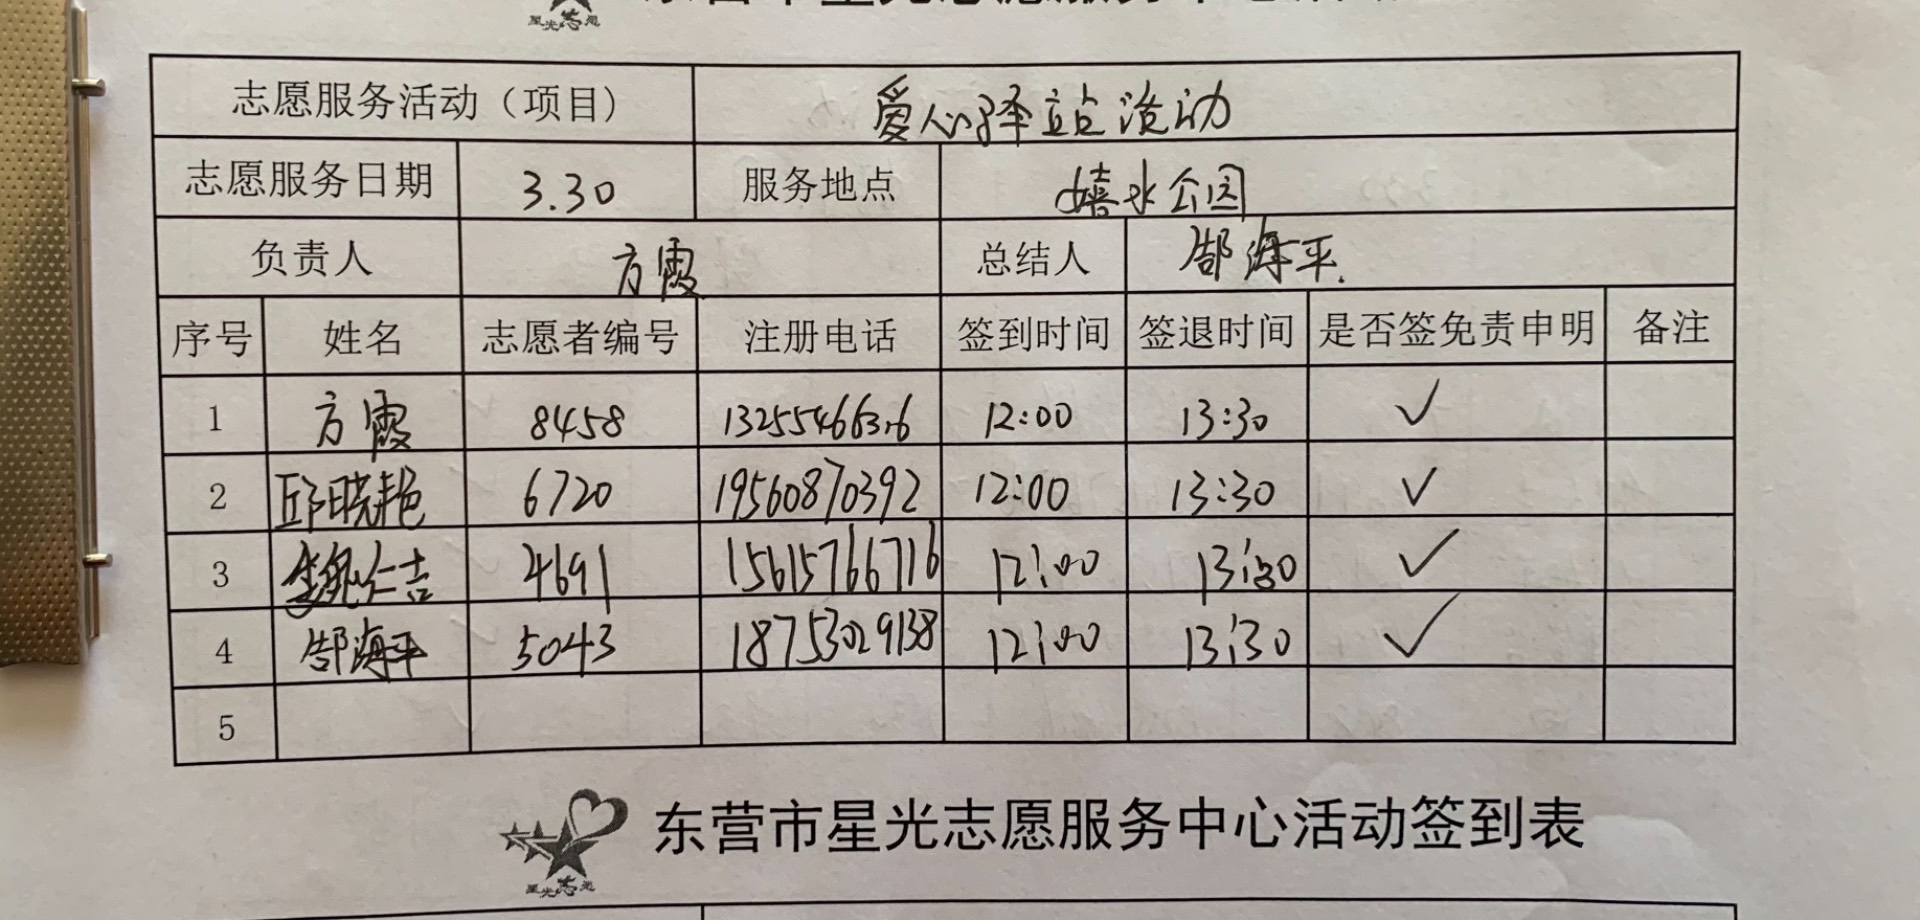 志愿服务活动（项目） 爱心驿站活动
志愿服务日期 3.30 服务地点 嬉水公园
负责人 方霞 总结人 郜海平
序号 姓名 志愿者编号 注册电话 签到时间 签退时间 是否签免责申明 备注
1 方霞 8458 12:00 13:30 ✓
2 邱晓艳 6720 19560870392 12:00 13:30 ✓
3 4691 15615766716 12:00 13:30 ✓
4 郜海平 5043 18753029138 12:00 13:30 ✓
5
东营市星光志愿服务中心活动签到表